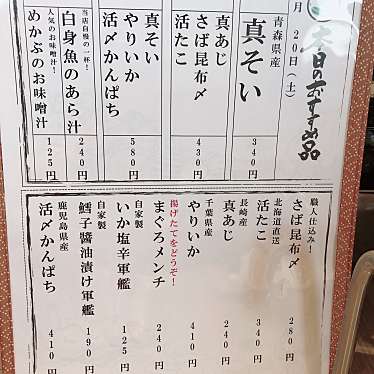 本日のおすすめ品
月 20日(土)
青森県産
真そい
340円
真あじ
さば昆布〆
活たこ
430円
真そい
やりいか
活〆かんぱち
580円
当店自慢の一杯!
白身魚のあら汁
240円
人気のお味噌汁!
めかぶのお味噌汁
125円
職人仕込み!
さば昆布〆
280円
北海道直送
活たこ
340円
長崎産
真あじ
240円
千葉県産
やりいか
410円
揚げたてをどうぞ!
まぐろメンチ
240円
自家製
いか塩辛軍艦
125円
自家製
鱈子醬油漬け軍艦
190円
鹿児島県産
活〆かんぱち
410円